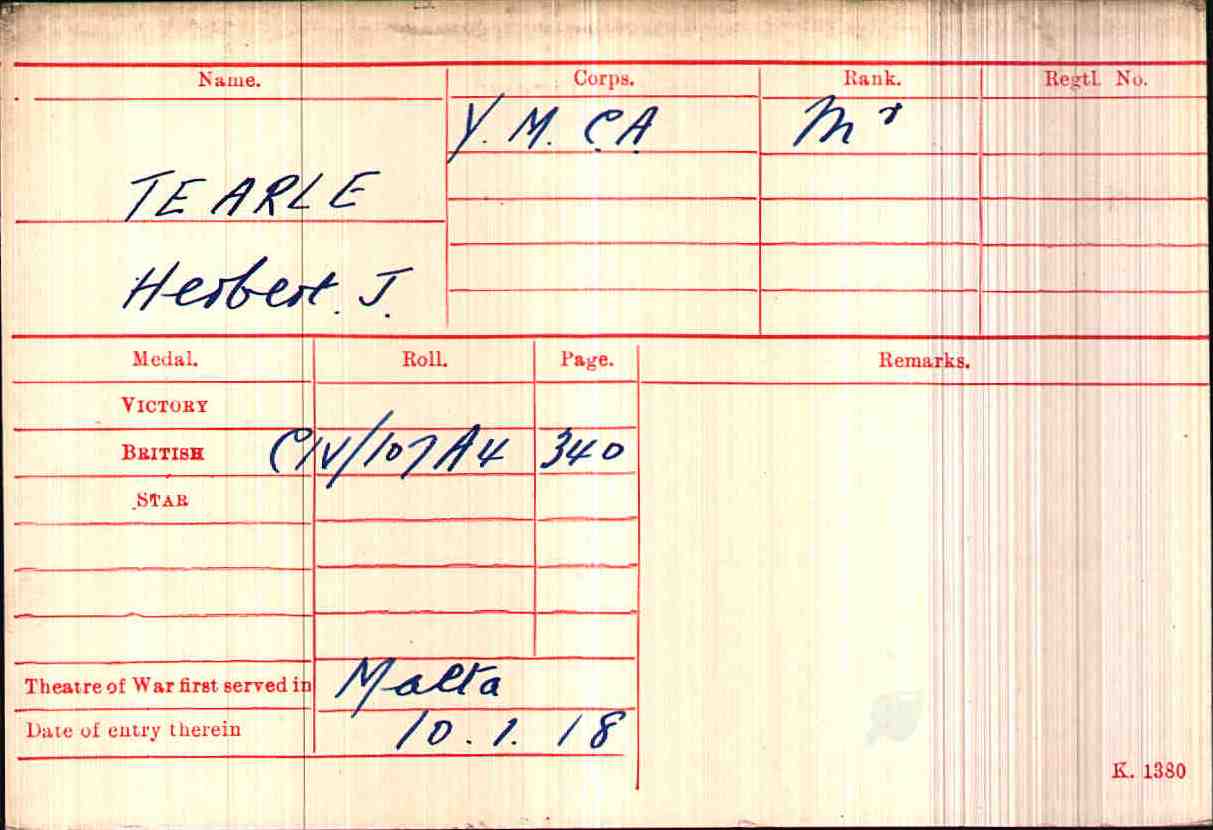 Name. Corps. Rank. Regtl. No.
Y. M. C.A Mr
TEARLE
Herbert. J.
Medal. Roll. Page. Remarks.
VICTORY
BRITISH CIV/107A4 340
STAR
Theatre of War first served in Malta
Date of entry therein 10.1.18
K. 1380